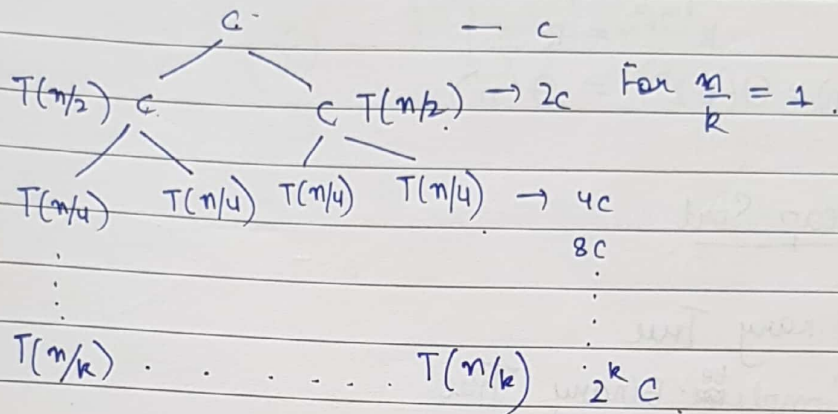 C — C
T(n/2) C C T(n/2) → 2C For n/k = 1.
T(n/4) T(n/4) T(n/4) T(n/4) → 4C
8C
T(n/k) . . . . . . T(n/k) 2^k C